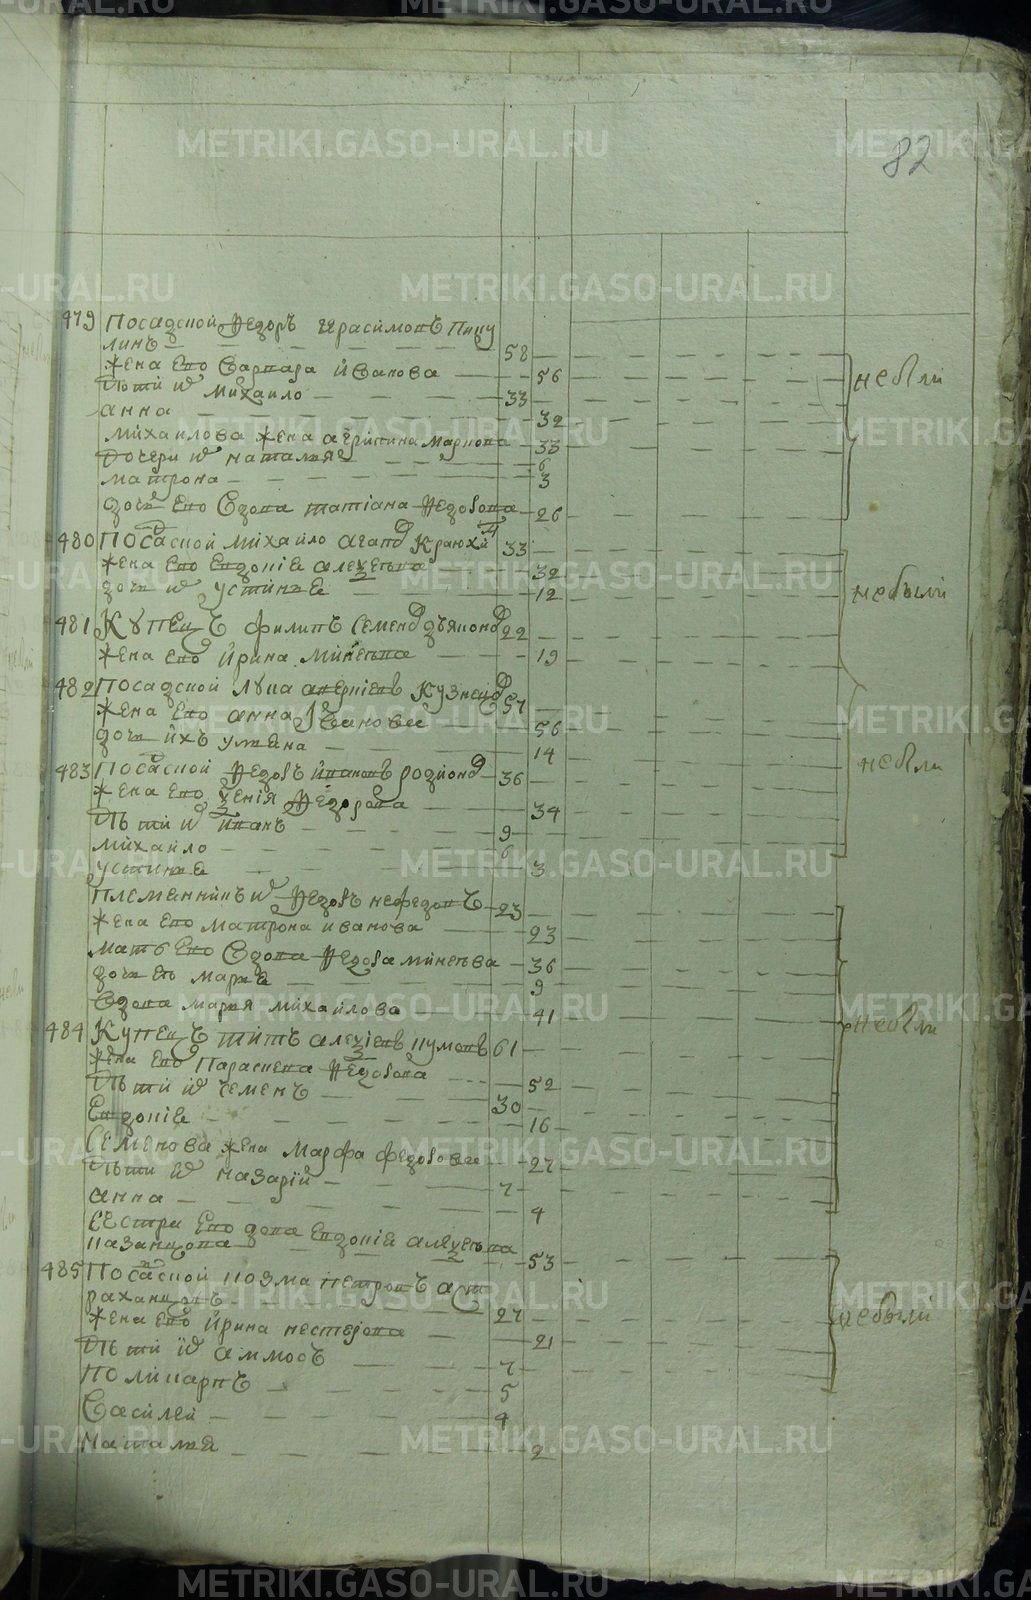 82
479 Посадской Федоръ Герасимовъ Пичу
линъ 58
жена Ево Варвара Иванова 56
Дѣти ихъ Михаило 33
анна 32
Михаилова жена агрипина Маркова 33
Дочери ихъ наталья 6
матрона 3
дочь Ево Вдова татiана Федорова 26 небыли
480 Посадской Михаило агапов 33
жена Ево Евдокiя алеѯеева 32
дочь ихъ устинья 12 небыли
481 Купецъ филипъ Семенов дьяконов 22
жена Ево Ирина Микѣева 19
482 Посадской Лука Кузнецов 57
жена Ево анна Ивановa 56
дочь ихъ улияна 14 небыли
483 Посадской Федоръ Ивановъ родионов 36
жена Ево ѯенiя Федорова 34
Дѣти ихъ Иванъ 9
Михаило 6
устинья 3
племянникъ ихъ Федоръ нефедовъ 23
жена Ево Матрона иванова 23
мать Ево Вдова Федора микеева 36
дочь Еѣ марья 9
Вдова марья михайлова 41
484 Купецъ титъ алеѯiевъ 61 небыли
жена Ево Парасковья Федорова 52
Дѣти ихъ Семенъ 30
Евдокiя 16
Семенова жена Марфа федоровa 27
Дѣти ихъ назарiй 7
анна 4
сестра Ево вдова Евдокiя алеѯеева
казанцова 53
485 Посадской козма петровъ аст
раханцовъ 27
жена Ево Ирина нестерова 21 небыли
Дѣти ихъ аммосъ 7
поликарпъ 5
Василей 4
наталья 2
METRIKI.GASO-URAL.RU